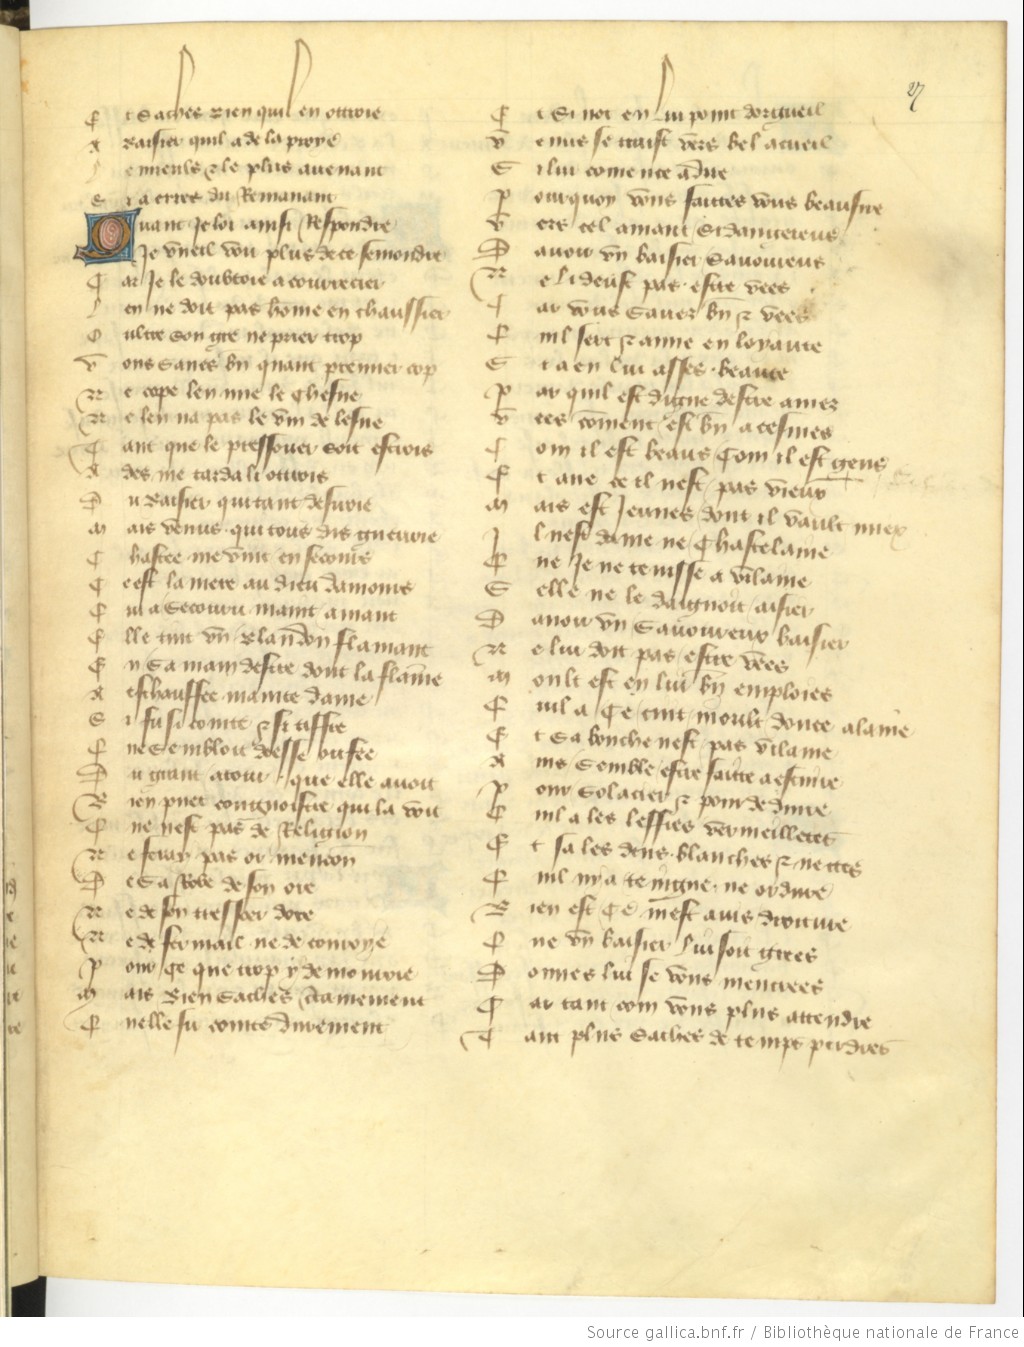 27
E t saches bien quil en ottroie
A baisier quil a de la proye
L e mieuls & le plus auenant
E t a erres du Remanant
Quant Je loi ainsi Respondre
Je vueil vou plus de ce semondre
C ar Je le doubtoie a courrecier
L en ne doit pas home en chaussier
O ultre son gre ne prier trop
V ous saues bn quant premier cop
N e cope len mie le Chesne
N e len na pas le vin de lesne
T ant que le pressouer soit estrois
A des me tarda li ottrois
D u baisier qui tant desiroie
M ais venus qui tous dis guerroie
C hastee me vint en secours
C e est la mere au dieu damours
Q ui a secouru maint amant
E lle tint vn brandon flamant
E n sa main destre dont la flame
A eschauffee mainte dame
S i fu si cointe & si tiffee
Q ne sembloit deesse ou fee
D u grant atour que elle auoit
B ien puet congnoistre qui la voit
Q ne nest pas de Religion
N e feray pas or mencion
D e sa Robe de son ore
N e de son tressoer dore
N e de fermail ne de courroye
P our Ce que trop y demourroie
M ais bien saches certainement
Q nelle fu cointe durement
E t si not en lui point dorgueil
V enus se traist vers bel acueil
S i lui comence a dire
P ourquoy vous faittes vous beau sire
V ers cel amant si dangereus
D auoir vn baisier sauoureus
N e li deust pas estre vees
C ar vous sauez bn & vees
Q uil sert & aime en loyaute
S i a en lui asses beaute
P ar quil est digne destre amez
V ees coment est bn acesmes
C om il est beaus Com il est gens
E t ane ce il nest pas vieux
M ais est Jeunes dont il vault miex
I l nest dame ne Chastelaine
Q ne Je ne tenisse a vilaine
S elle ne le daignoit aisier
D auoir vn sauoureux baisier
N e lui doit pas estre vees
M oult est en lui bn emploies
Q uil a Ce cuit moult douce alaine
E t sa bouche nest pas vilaine
A ins semble estre faitte a estuire
P our solacier & pour deduire
Q uil a les leffres vermeillettes
E t sa les dens blanches & nettes
Q uil ny a teingne ne ordure
B ien est Ce mest auis droiture
Q ne vn baisier lui soit grees
D onnes lui se vous men crees
C ar tant com vous plus attendre
T ant plus saches de temps perdres
Source gallica.bnf.fr / Bibliothèque nationale de France